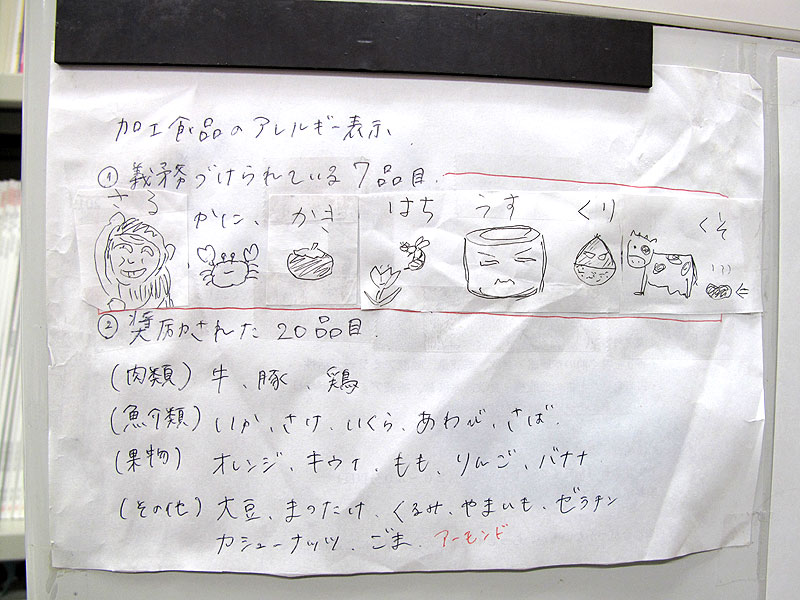 加工食品のアレルギー表示
① 義務づけられている7品目.
さる かに、 かき はち うす くり くそ
② 奨励された20品目.
(肉類) 牛、豚、鶏
(魚介類) いか、さけ、いくら、あわび、さば.
(果物) オレンジ、キウイ、もも、りんご、バナナ
(その他) 大豆、まつたけ、くるみ、やまいも、ゼラチン
カシューナッツ、ごま、アーモンド